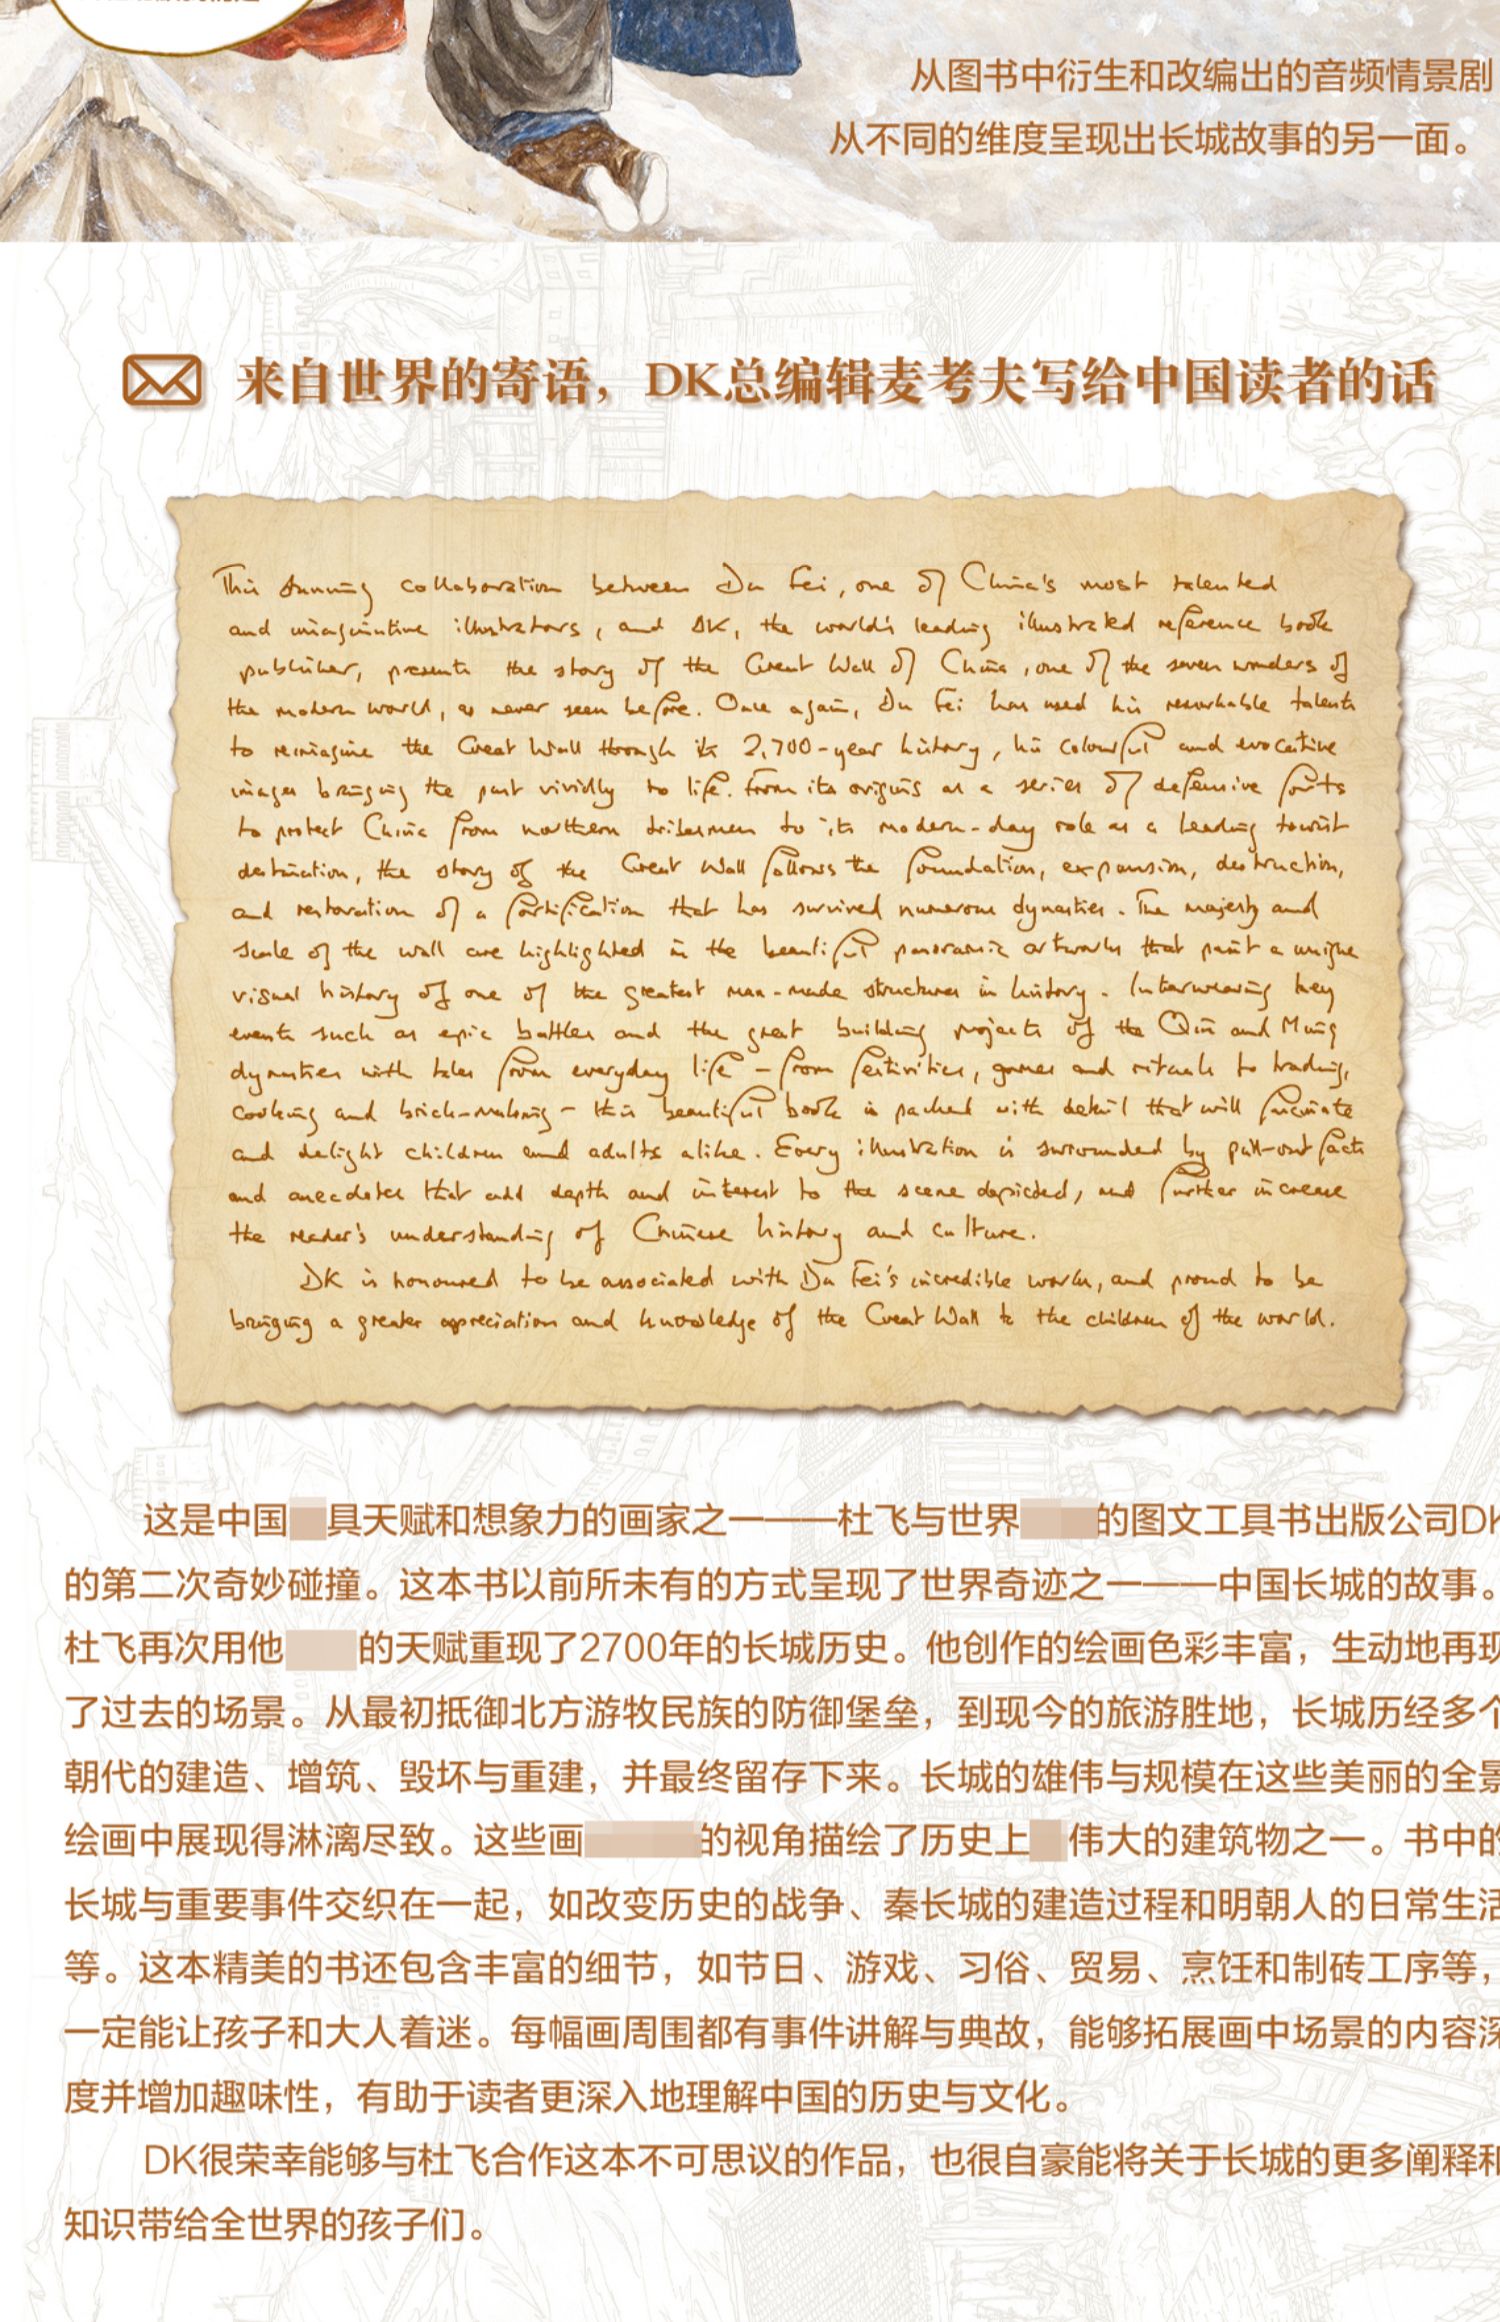 从图书中衍生和改编出的音频情景剧
从不同的维度呈现出长城故事的另一面。
来自世界的寄语，DK总编辑麦考夫写给中国读者的话
This stunning collaboration between Du Fei, one of China's most talented
and imaginative illustrators, and DK, the world's leading illustrated reference book
publisher, presents the story of the Great Wall of China, one of the seven wonders of
the modern world, as never seen before. Once again, Du Fei has used his remarkable talents
to reimagine the Great Wall through its 2,700-year history, his colourful and evocative
images bringing the past vividly to life. From its origins as a series of defensive forts
to protect China from northern tribesmen to its modern-day role as a leading tourist
destination, the story of the Great Wall follows the foundation, expansion, destruction,
and restoration of a fortification that has survived numerous dynasties. The majesty and
scale of the wall are highlighted in the beautiful panoramic artworks that paint a unique
visual history of one of the greatest man-made structures in history. Interweaving key
events such as epic battles and the great building projects of the Qin and Ming
dynasties with tales from everyday life - from festivities, games and rituals to trading,
cooking and brick-making - this beautiful book is packed with detail that will fascinate
and delight children and adults alike. Every illustration is surrounded by pull-out facts
and anecdotes that add depth and interest to the scene depicted, and further increase
the reader's understanding of Chinese history and culture.
DK is honoured to be associated with Du Fei's incredible work, and proud to be
bringing a greater appreciation and knowledge of the Great Wall to the children of the world.
这是中国具天赋和想象力的画家之一——杜飞与世界的图文工具书出版公司DK
的第二次奇妙碰撞。这本书以前所未有的方式呈现了世界奇迹之一——中国长城的故事。
杜飞再次用他的天赋重现了2700年的长城历史。他创作的绘画色彩丰富，生动地再现
了过去的场景。从最初抵御北方游牧民族的防御堡垒，到现今的旅游胜地，长城历经多个
朝代的建造、增筑、毁坏与重建，并最终留存下来。长城的雄伟与规模在这些美丽的全景
绘画中展现得淋漓尽致。这些画的视角描绘了历史上伟大的建筑物之一。书中的
长城与重要事件交织在一起，如改变历史的战争、秦长城的建造过程和明朝人的日常生活
等。这本精美的书还包含丰富的细节，如节日、游戏、习俗、贸易、烹饪和制砖工序等，
一定能让孩子和大人着迷。每幅画周围都有事件讲解与典故，能够拓展画中场景的内容深
度并增加趣味性，有助于读者更深入地理解中国的历史与文化。
DK很荣幸能够与杜飞合作这本不可思议的作品，也很自豪能将关于长城的更多阐释和
知识带给全世界的孩子们。